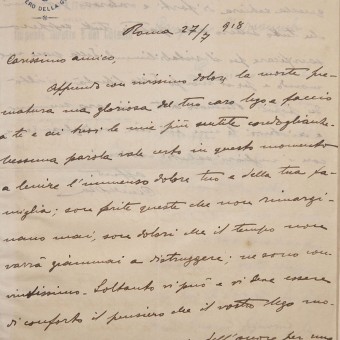 ERO DELLA G
Roma 27/7 918
Carissimo amico,
Apprendo con vivissimo dolore la morte pre-
matura ma gloriosa del tuo caro Ugo e faccio
a te e ai tuoi le mie più sentite condoglianze.
Nessuna parola vale certo in questo momento
a lenire l'immenso dolore tuo e della tua fa-
miglia; son ferite queste che non rimargi-
nano mai, son dolori che il tempo non
varrà giammai a distruggere; ne sono con-
vintissimo. Soltanto vi può e vi deve essere
di conforto il pensiero che il vostro Ugo mo-
dell'onore per una